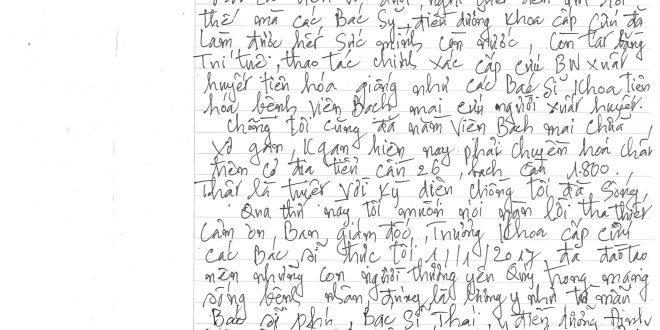 thế mà các Bác Sỹ, điều dưỡng khoa cấp cứu đã
làm được hết sức mình còn nước, còn tát bằng
Trí tuệ, thao tác chính xác cấp cứu BN xuất
huyết tiên hóa giống như các Bác Sĩ khoa tiên
hóa bệnh viện Bạch mai cứu người xuất huyết.
Chồng tôi cũng đã nằm viện Bạch mai chữa
xơ gan, K gan hiện nay phải chuyển hoá chất
thêm cơ địa tiểu cần 26, bạch cần 1.800.
Thật là tuyệt vời kỳ diệu chồng tôi đã sống,
Qua thư này tôi muốn nói ngàn lời tha thiết
Cảm ơn, Ban giám đốc, Trưởng khoa cấp cứu
các Bác sĩ trực tối 1/1/2017 đã đào tạo
nên những con người thương yêu Quý trọng mạng
sống bệnh nhân đúng là lương y như từ mẫu
Bác sĩ Bác Sĩ Thái, điều dưỡng